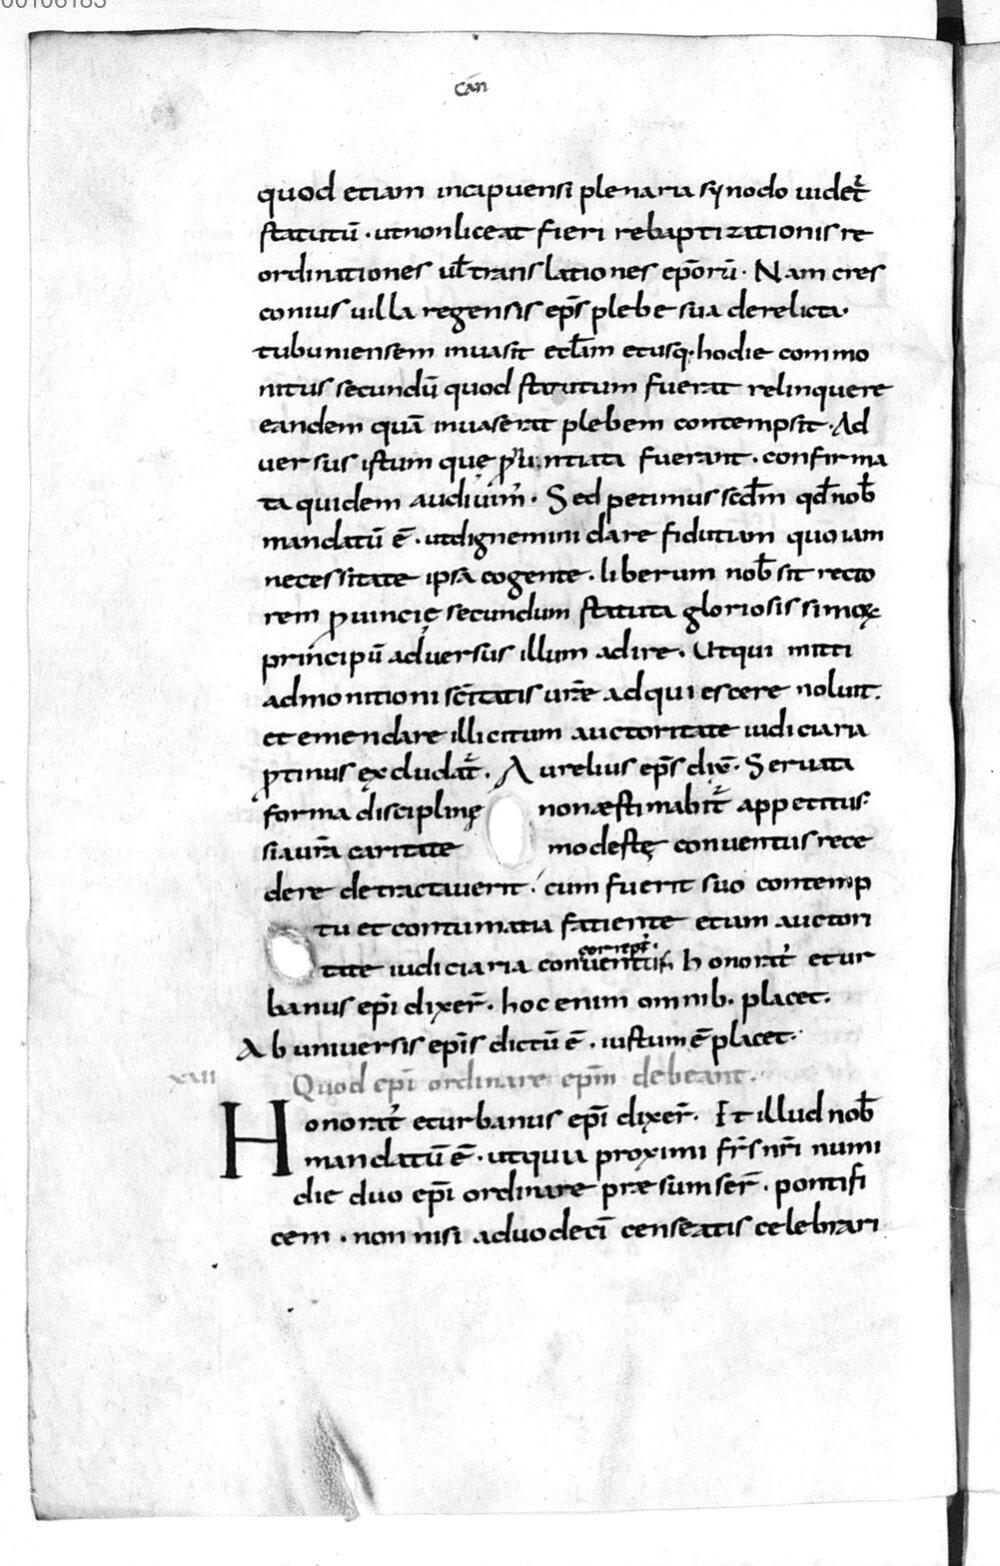 00106183
can̄
quod etiam incapuensi plenaria synodo uidet᷑
statutū · ut non liceat fieri rebaptizationis re
ordinationes ul̄ translationes ep̄orū · Nam cres
conius uilla regensis ep̄s plebe sua derelicta·
tubuniensem inuasit eccl̄am et usq; hodie commo
nitus secundū quod statutum fuerat relinquere
eandem quā inuaserat plebem contempsit · Ad
uersus istum quę ꝓnuntiata fuerant · confirma
ta quidem audiuim᷒ · Sed petimus scd̄m qd̄ nob̄
mandatū ē · ut dignemini dare fidutiam quo iam
necessitate ipsa cogente · liberum nob̄ sit recto
rem ꝓuincię secundum statuta gloriosissimoꝝ
principū aduersus illum adire · Ut qui miti
admonitioni sc̄itatis ur̄e adquiescere noluit·
et emendare illicitum auctoritate iudiciaria
ꝓtinus excludat᷑ · Aurelius ep̄s dix̄ · Seruata
forma disciplinę non æstimabit᷑ appetitus·
si a ur̄a caritate modestę conuentus rece
dere detractauerit · cum fuerit suo contemp
tu et contumatia fatiente etiam auctori
tate iudiciaria conuentus honorat᷒ et ur
corrept᷒·
banus ep̄i dixer̄ · hoc enim omnib· placet·
Ab uniuersis ep̄is dictū ē · iustum ē placet·
xvii Quod ep̄i ordinare ep̄m debeant·
Honorat᷒ et urbanus ep̄i dixer̄ · Et illud nob̄
mandatū ē · ut quia proximi fr̄s nr̄i numi
die duo ep̄i ordinare præsumser̄ · pontifi
cem · non nisi a duodecī censeatis celebrari